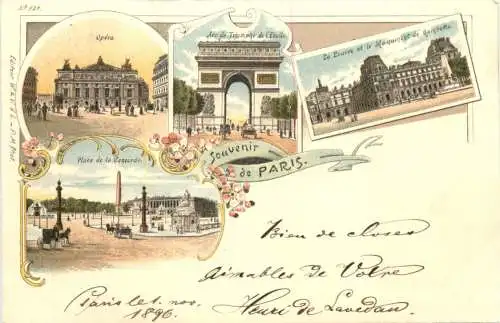 Opéra
Arc de Triomphe de l'Etoile
Le Louvre et le Monument de Gambetta
Place de la Concorde
Souvenir
de PARIS.
Bien de closes
Aimables de Votre
Henri de Lavedan
Paris le 1. nov.
1896.